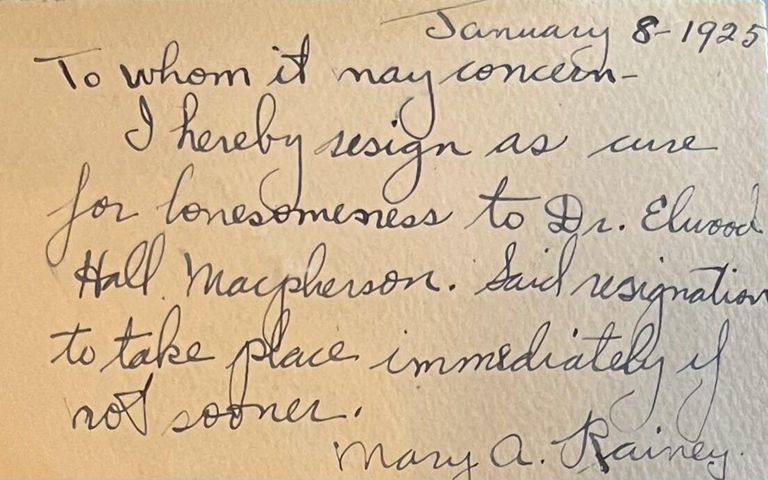 January 8-1925
To whom it may concern-
I hereby resign as cure
for lonesomeness to Dr. Elwood
Hall Macpherson. Said resignation
to take place immediately if
not sooner.
Mary A. Rainey.